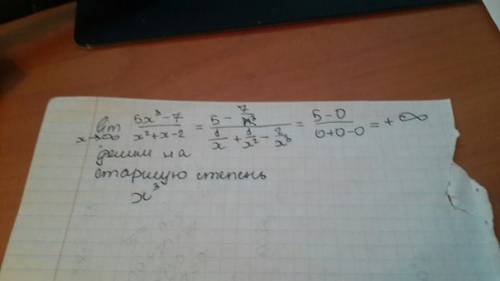 lim x→∞ (5x³-7)/(x²+x-2) = (5 - 7/x³)/(1/x + 1/x² - 2/x³) = (5-0)/(0+0-0) = +∞
делим на
старшую степень
x³